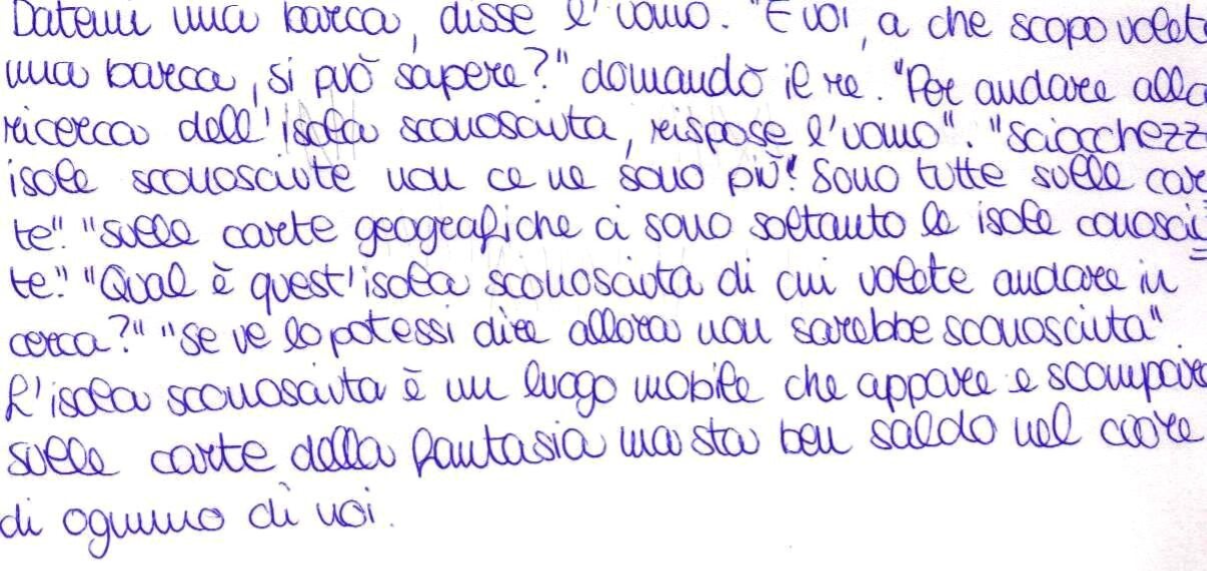 Datemi una barca, disse l'uomo. "E voi, a che scopo volete
una barca, si può sapere?" domandò il re. "Per andare alla
ricerca dell'isola sconosciuta, rispose l'uomo". "Sciocchezz
isole sconosciute non ce ne sono più! Sono tutte sulle car
te". "Sulle carte geografiche ci sono soltanto le isole conosciu
te." "Qual è quest'isola sconosciuta di cui volete andare in
cerca?" "Se ve lo potessi dire allora non sarebbe sconosciuta".
L'isola sconosciuta è un luogo mobile che appare e scompare
sulle carte della fantasia ma sta ben saldo nel cuore
di ognuno di noi.